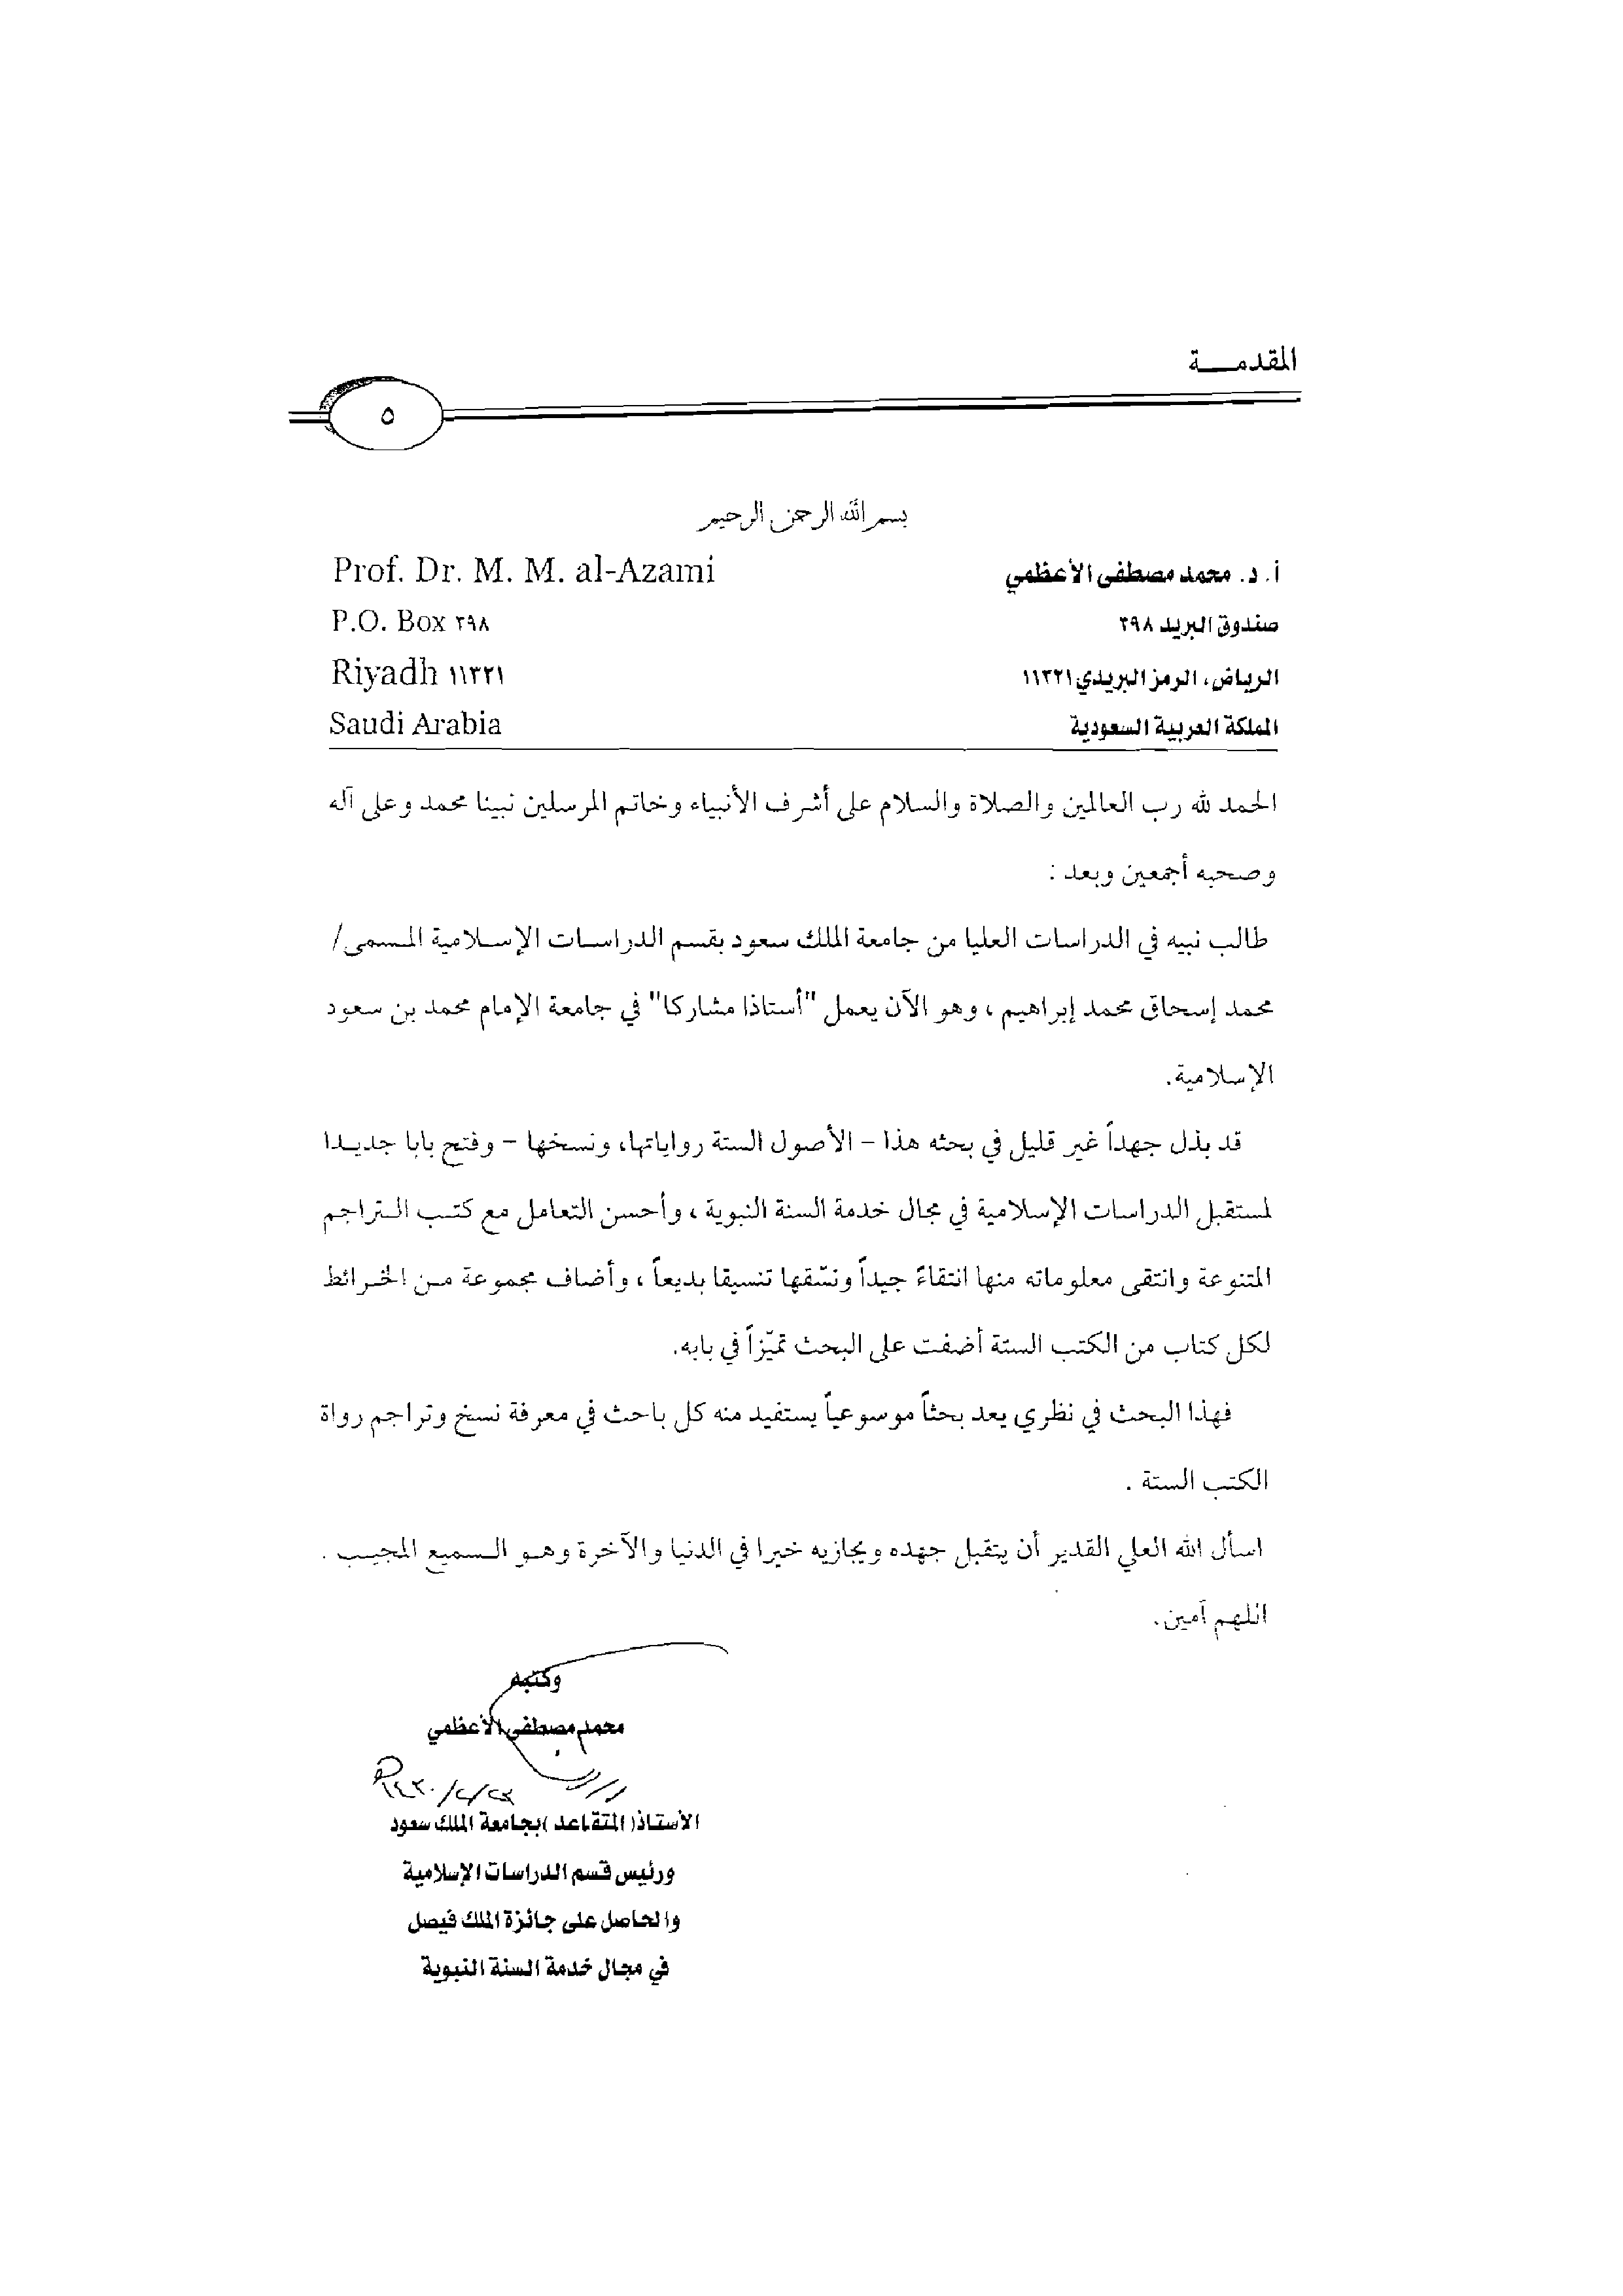 المقدمـــة
٥
بسم الله الرحمن الرحيم
Prof. Dr. M. M. al-Azami
أ. د. محمد مصطفى الأعظمي
P.O. Box ٢٩٨
صندوق البريد ٢٩٨
Riyadh ١١٣٢١
الرياض، الرمز البريدي ١١٣٢١
Saudi Arabia
المملكة العربية السعودية
الحمد لله رب العالمين والصلاة والسلام على أشرف الأنبياء وخاتم المرسلين نبينا محمد وعلى آله
وصحبه أجمعين وبعد :
طالب نبيه في الدراسات العليا من جامعة الملك سعود بقسم الدراسات الإسلامية المسمى/
محمد إسحاق محمد إبراهيم ، وهو الآن يعمل "أستاذا مشاركا" في جامعة الإمام محمد بن سعود
الإسلامية.
قد بذل جهداً غير قليل في بحثه هذا – الأصول الستة رواياتها، ونسخها – وفتح بابا جديدا
لمستقبل الدراسات الإسلامية في مجال خدمة السنة النبوية ، وأحسن التعامل مع كتب التراجم
المتنوعة وانتقى معلوماته منها انتقاءً جيداً ونسّقها تنسيقا بديعاً ، وأضاف مجموعة من الخرائط
لكل كتاب من الكتب الستة أضفت على البحث تميّزاً في بابه.
فهذا البحث في نظري يعد بحثاً موسوعياً يستفيد منه كل باحث في معرفة نسخ وتراجم رواة
الكتب الستة .
اسأل الله العلي القدير أن يتقبل جهده ويجازيه خيرا في الدنيا والآخرة وهو السميع المجيب .
اللهم آمين.
وكتبه
محمد مصطفى الأعظمي
الأستاذ( المتقاعد )بجامعة الملك سعود
ورئيس قسم الدراسات الإسلامية
والحاصل على جائزة الملك فيصل
في مجال خدمة السنة النبوية